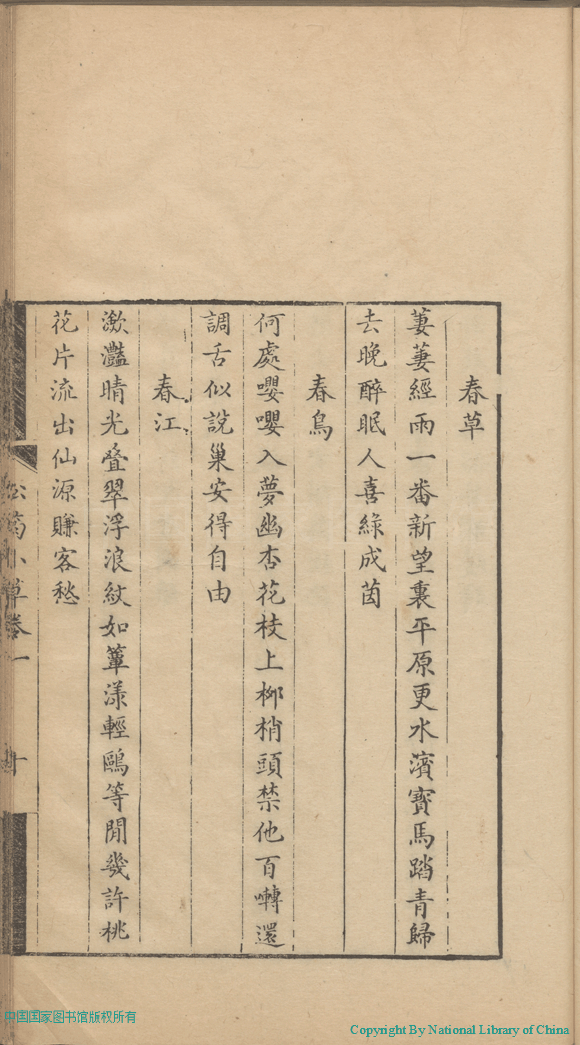 春草
萋萋經雨一番新望裏平原更水濱寳馬踏青歸
去晚醉眠人喜綠成茵
春鳥
何處嚶嚶入夢幽杏花枝上柳梢頭禁他百囀還
調舌似說巢安得自由
春江
潋灩晴光叠翠浮浪紋如簟漾輕鷗等閒幾許桃
花片流出仙源賺客愁
松菊小草卷一
十
中国国家图书馆版权所有
Copyright By National Library of China